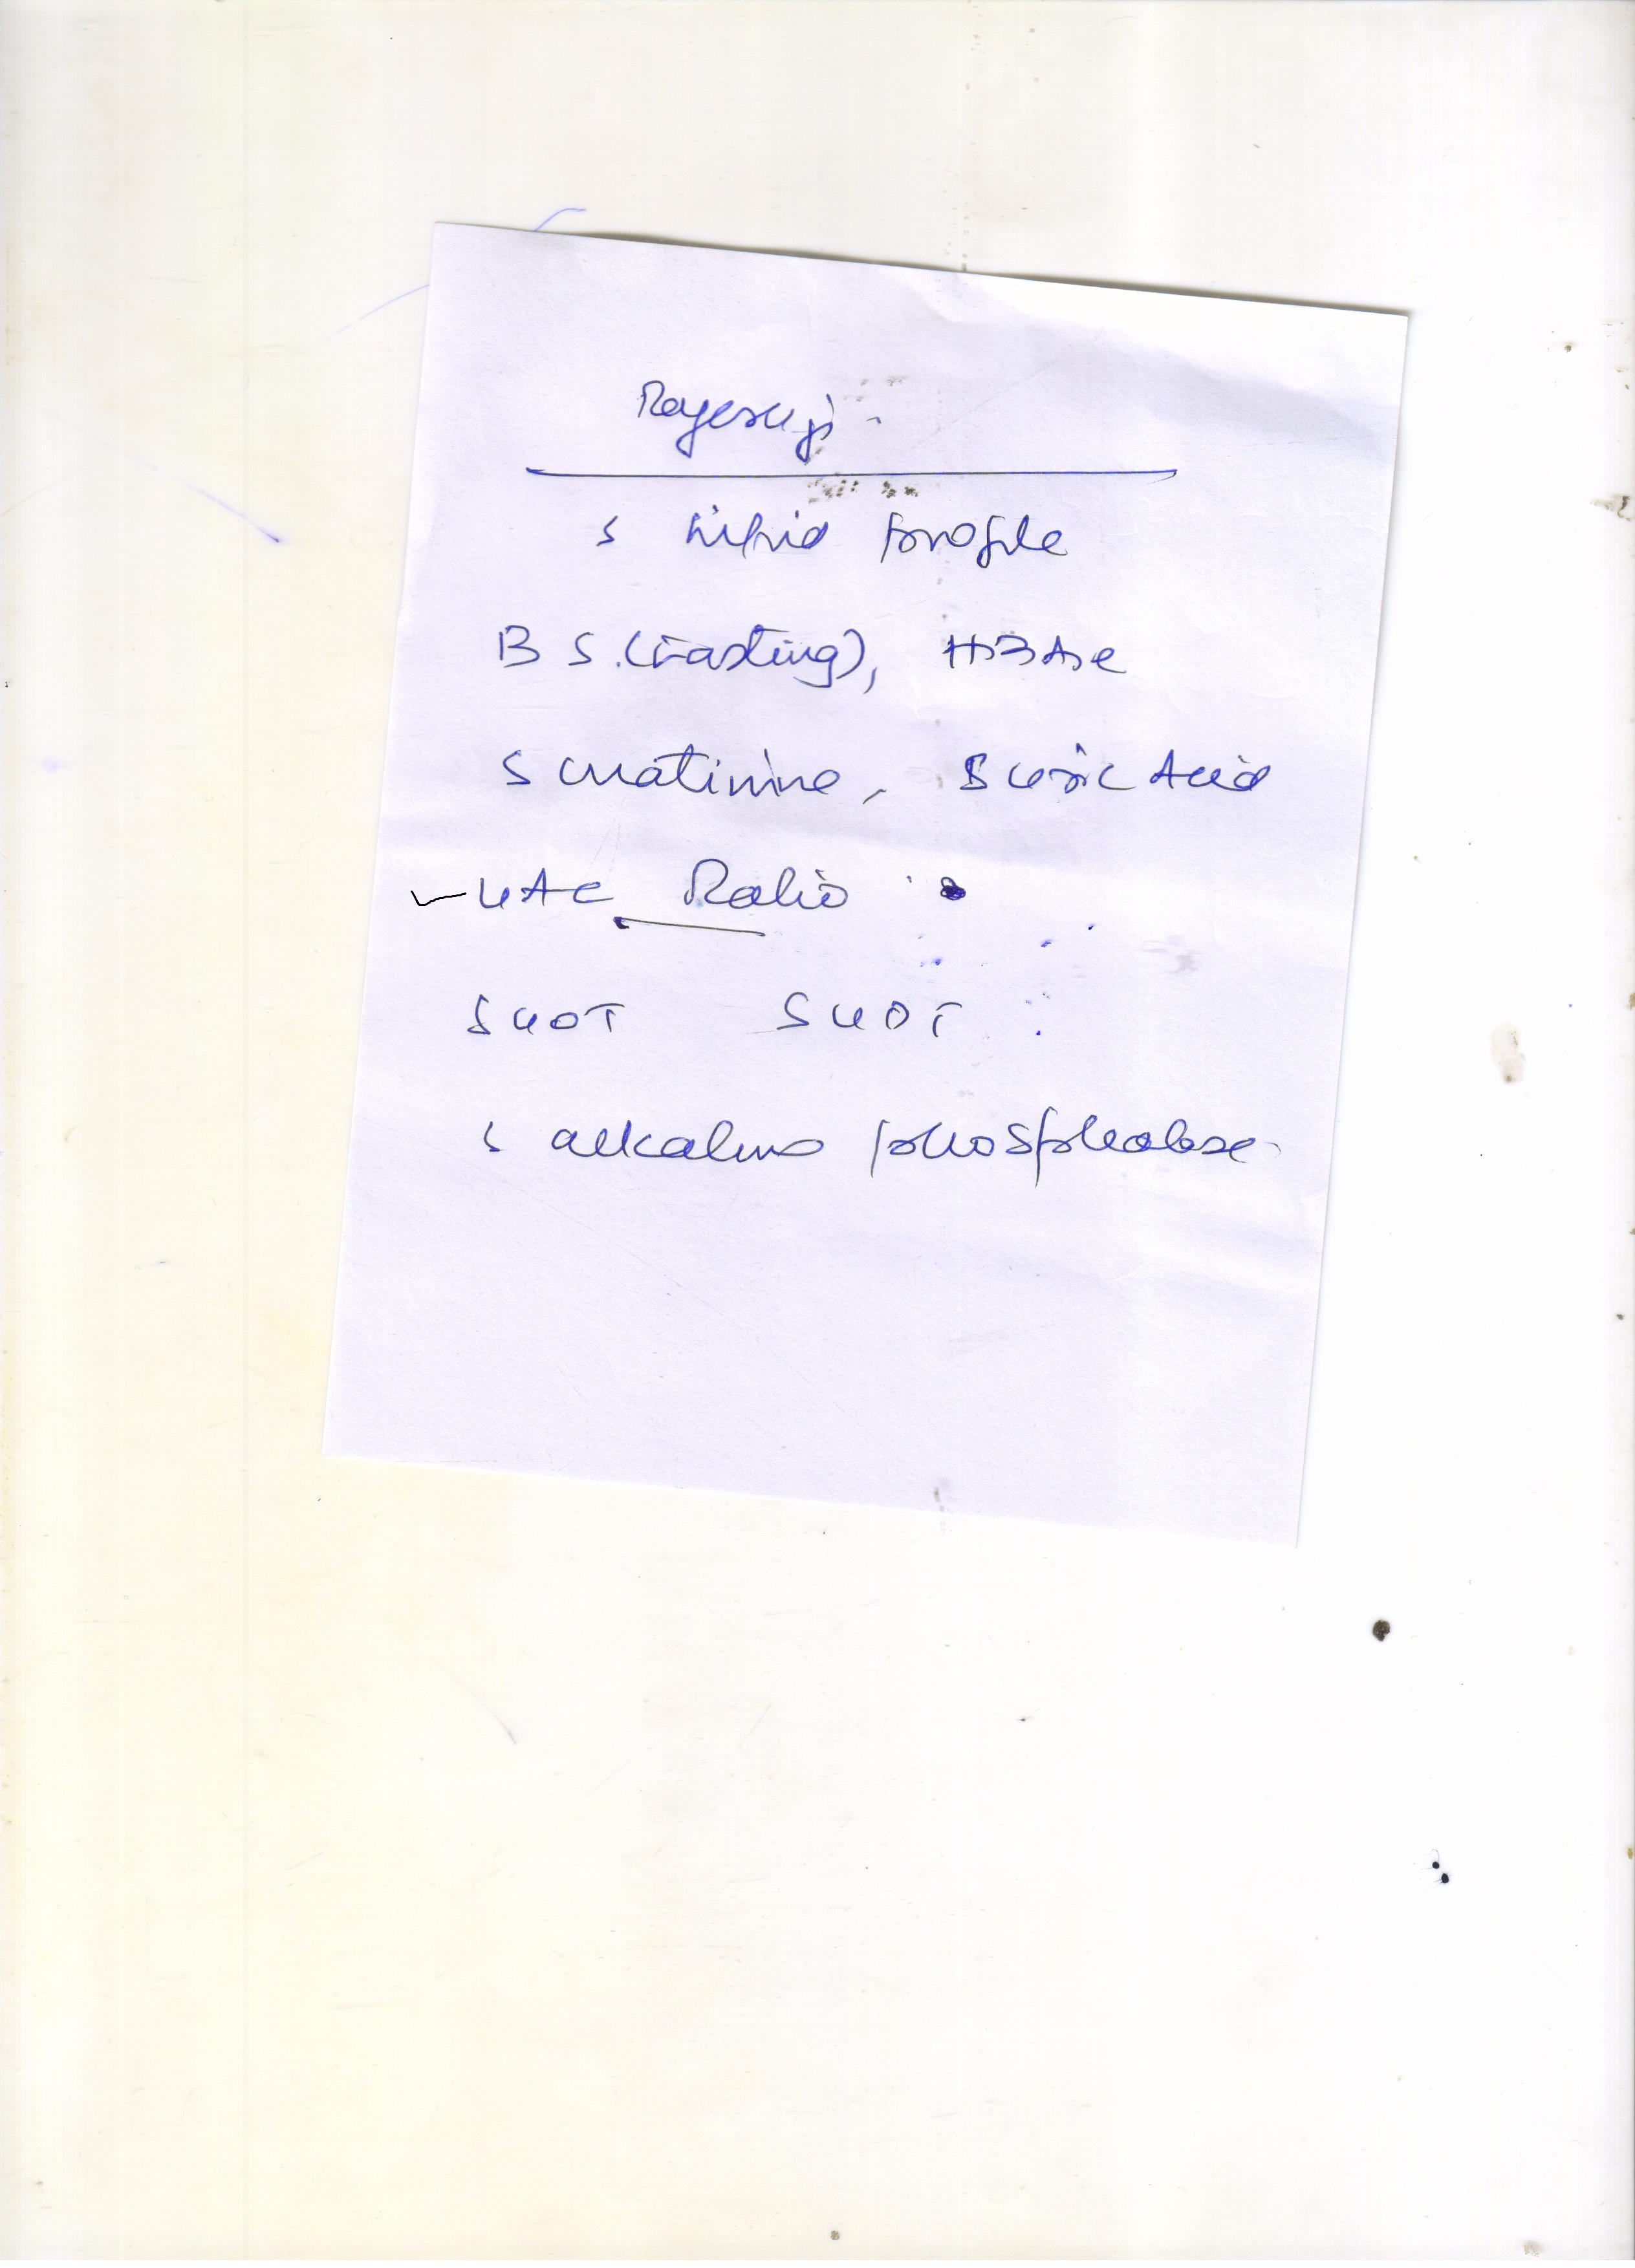 S Lipid profile
B S. (Fasting), HBA1c
S creatinine, S Uric Acid
UAC Ratio
SGOT SGOT
S alkaline phosphatase